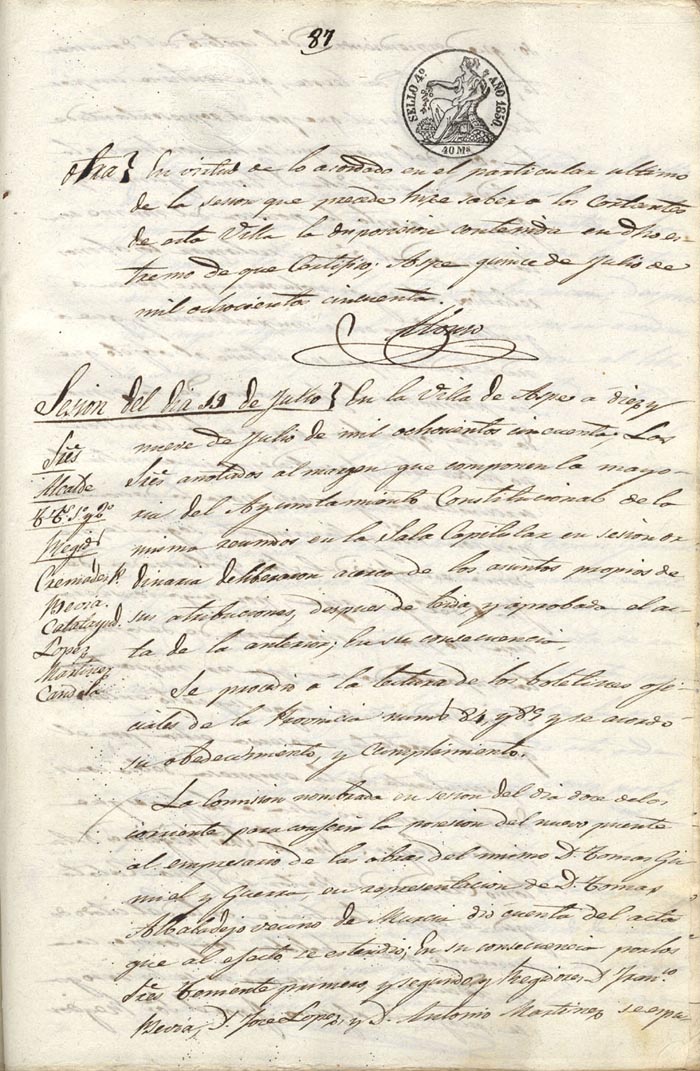 87
SELLO 4º AÑO 1850.
40 Ms
otra} En virtud de lo acordado en el particular ultimo
de la sesion que precede hice saber a los Cortantes
de esta Villa la disposicion contenida en dho es-
tremo de que Certifico; Aspe quince de Julio de
mil ochocientos cincuenta.
Sesion del dia 19 de Julio} En la Villa de Aspe a diez y
nueve de Julio de mil ochocientos cincuenta, Los
Sres anotados al margen que componen la mayo-
ria del Ayuntamiento Constitucional de la
misma reunidos en la Sala Capitular en sesion or-
dinaria deliberaron acerca de los asuntos propios de
sus atribuciones, despues de leida y aprobada el ac-
ta de la anterior; En su consecuencia,
Sres
Alcalde
Ttes 1º y 2º
Regids
Cremades
Pavia.
Calatayud.
Lopez
Martinez
Candela
Se procedio a la lectura de los boletines ofi-
ciales de la Provincia nums 84 y 85 y se acordo
su obedecimiento, y Cumplimiento.
La Comision nombrada en sesion del dia doce de los
corriente para conferir la posesion del nuevo puente
al empresario de las obras del mismo D. Tomas Gu-
miel y Guerra, en representacion de D. Tomas
Albaladejo vecino de Murcia dio cuenta del acta
que al efecto se estendio; En su consecuencia por los
Sres Teniente primero y segundo y Regidores D. Franco
Pavia, D. Jose Lopez, y D. Antonio Martinez se espu-